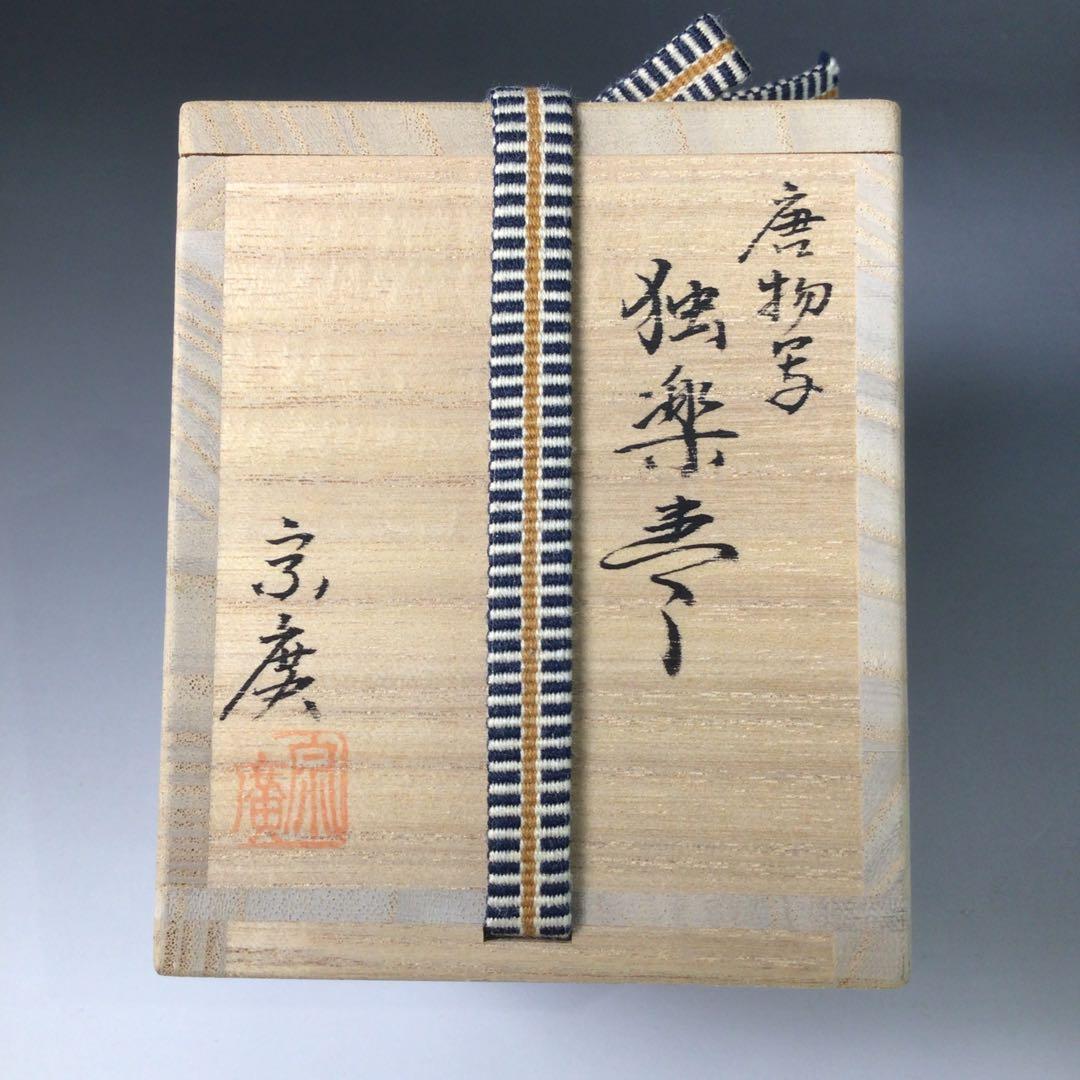 唐物写
独楽棗
宗廣
宗廣